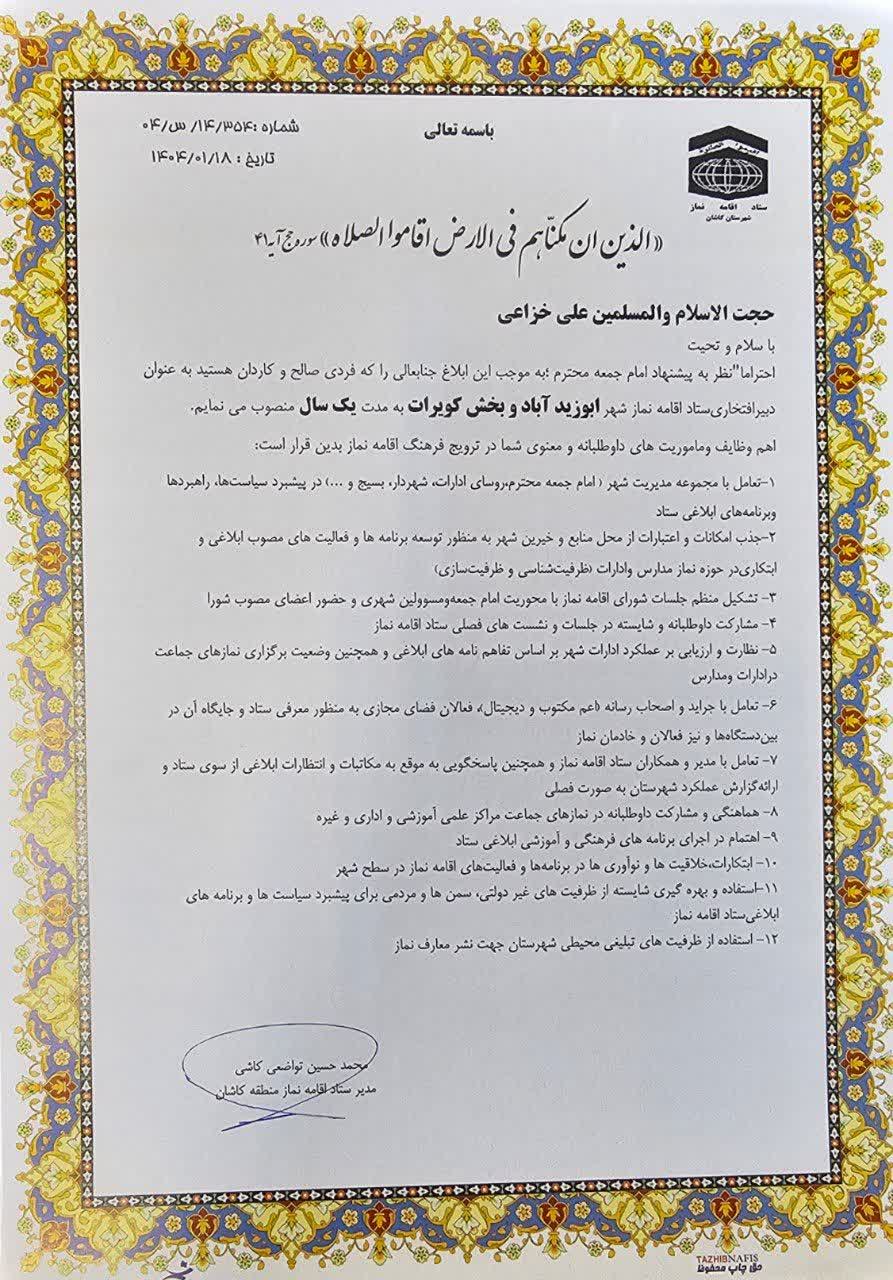 باسمه تعالی
شماره :۱۴/۳۵۴/ س/۰۴
تاریخ : ۱۴۰۴/۰۱/۱۸
ستاد اقامه نماز
شهرستان کاشان
«الذین ان مکنّاهم فی الارض اقاموا الصلاه» سوره حج آیه ۴۱
حجت الاسلام والمسلمین علی خزاعی
با سلام و تحیت
احتراما"نظر به پیشنهاد امام جمعه محترم ؛به موجب این ابلاغ جنابعالی را که فردی صالح و کاردان هستید به عنوان
دبیرافتخاری‌ستاد اقامه نماز شهر ابوزید آباد و بخش کویرات به مدت یک سال منصوب می نمایم.
اهم وظایف وماموریت های داوطلبانه و معنوی شما در ترویج فرهنگ اقامه نماز بدین قرار است:
۱-تعامل با مجموعه مدیریت شهر ( امام جمعه محترم،روسای ادارات، شهردار، بسیج و ...) در پیشبرد سیاست‌ها، راهبردها
وبرنامه‌های ابلاغی ستاد
۲-جذب امکانات و اعتبارات از محل منابع و خیرین شهر به منظور توسعه برنامه ها و فعالیت های مصوب ابلاغی و
ابتکاری‌در حوزه نماز مدارس وادارات (ظرفیت‌شناسی و ظرفیت‌سازی)
۳- تشکیل منظم جلسات شورای اقامه نماز با محوریت امام جمعه‌ومسوولین شهری و حضور اعضای مصوب شورا
۴- مشارکت داوطلبانه و شایسته در جلسات و نشست های فصلی ستاد اقامه نماز
۵- نظارت و ارزیابی بر عملکرد ادارات شهر بر اساس تفاهم نامه های ابلاغی و همچنین وضعیت برگزاری نمازهای جماعت
درادارات ومدارس
۶- تعامل با جراید و اصحاب رسانه (اعم مکتوب و دیجیتال)، فعالان فضای مجازی به منظور معرفی ستاد و جایگاه آن در
بین‌دستگاه‌ها و نیز فعالان و خادمان نماز
۷- تعامل با مدیر و همکاران ستاد اقامه نماز و همچنین پاسخگویی به موقع به مکاتبات و انتظارات ابلاغی از سوی ستاد و
ارائه‌گزارش عملکرد شهرستان به صورت فصلی
۸- هماهنگی و مشارکت داوطلبانه در نمازهای جماعت مراکز علمی آموزشی و اداری و غیره
۹- اهتمام در اجرای برنامه های فرهنگی و آموزشی ابلاغی ستاد
۱۰- ابتکارات،خلاقیت ها و نوآوری ها در برنامه‌ها و فعالیت‌های اقامه نماز در سطح شهر
۱۱-استفاده و بهره گیری شایسته از ظرفیت های غیر دولتی، سمن ها و مردمی برای پیشبرد سیاست ها و برنامه های
ابلاغی‌ستاد اقامه نماز
۱۲- استفاده از ظرفیت های تبلیغی محیطی شهرستان جهت نشر معارف نماز
محمد حسین تواضعی کاشی
مدیر ستاد اقامه نماز منطقه کاشان
TAZHIBNAFIS
حق چاپ محفوظ